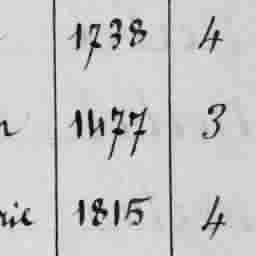 1738 4
n 1477 3
rie 1815 4